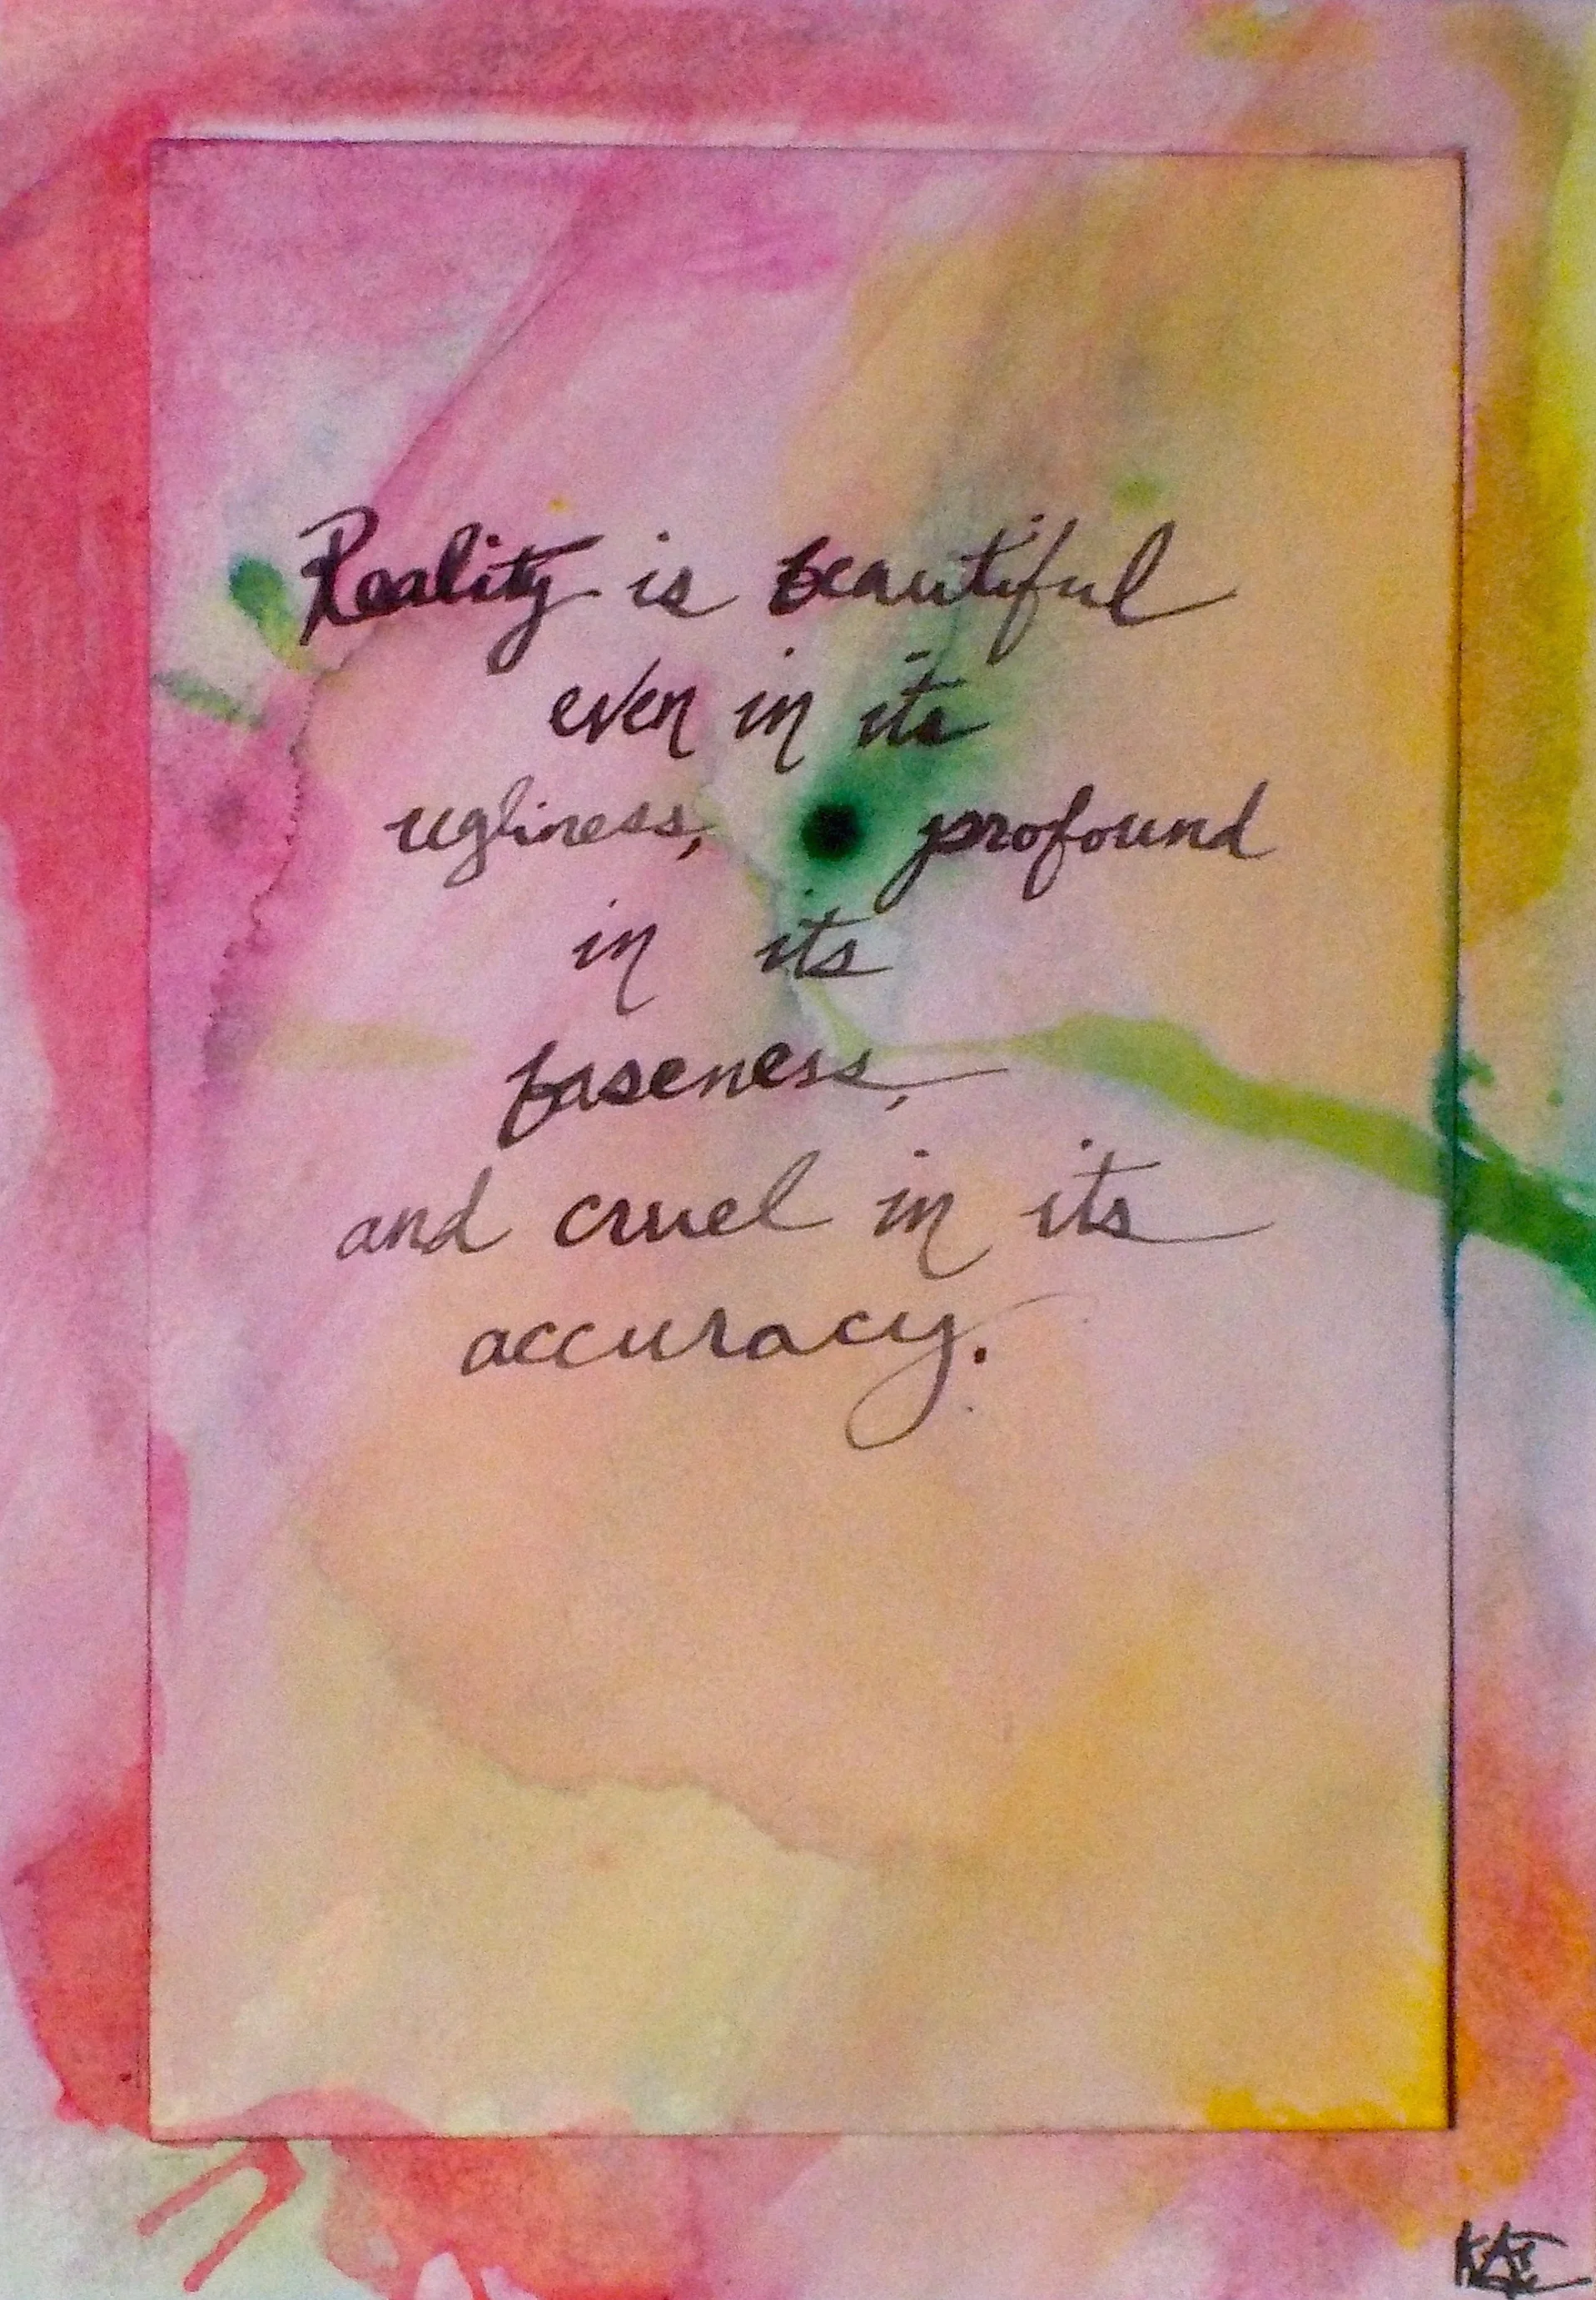 Reality is beautiful
even in its
ugliness, profound
in its
baseness,
and cruel in its
accuracy.